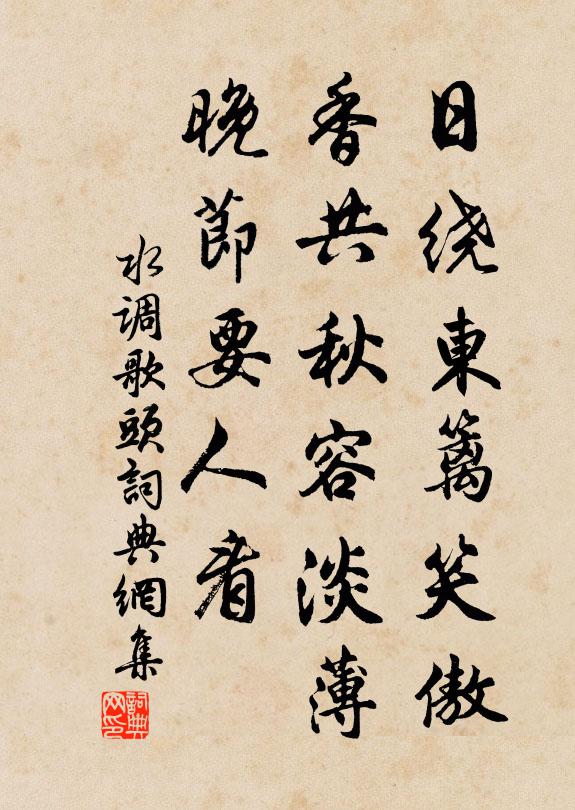 日绕東篱笑傲
香共秋容淡薄
晚節要人看
水调歌頭詞典網集
詞典网印